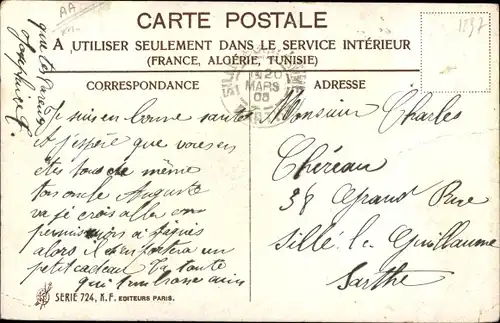 CARTE POSTALE
A UTILISER SEULEMENT DANS LE SERVICE INTÉRIEUR
(FRANCE, ALGÉRIE, TUNISIE)
CORRESPONDANCE
ADRESSE
AA
1297
20
MARS
08
Je suis en bonne santé
J'espère que vous en
êtes tous de même
ton oncle Auguste
va je crois aller en
permission à Pâques
alors il t'emportera un
petit cadeau Ta tante
qui t'embrasse ainsi
que tes parents
Monsieur Charles
Chéreau
38 Grand Rue
Sillé le Guillaume
Sarthe
SERIE 724, N.F. EDITEURS PARIS.